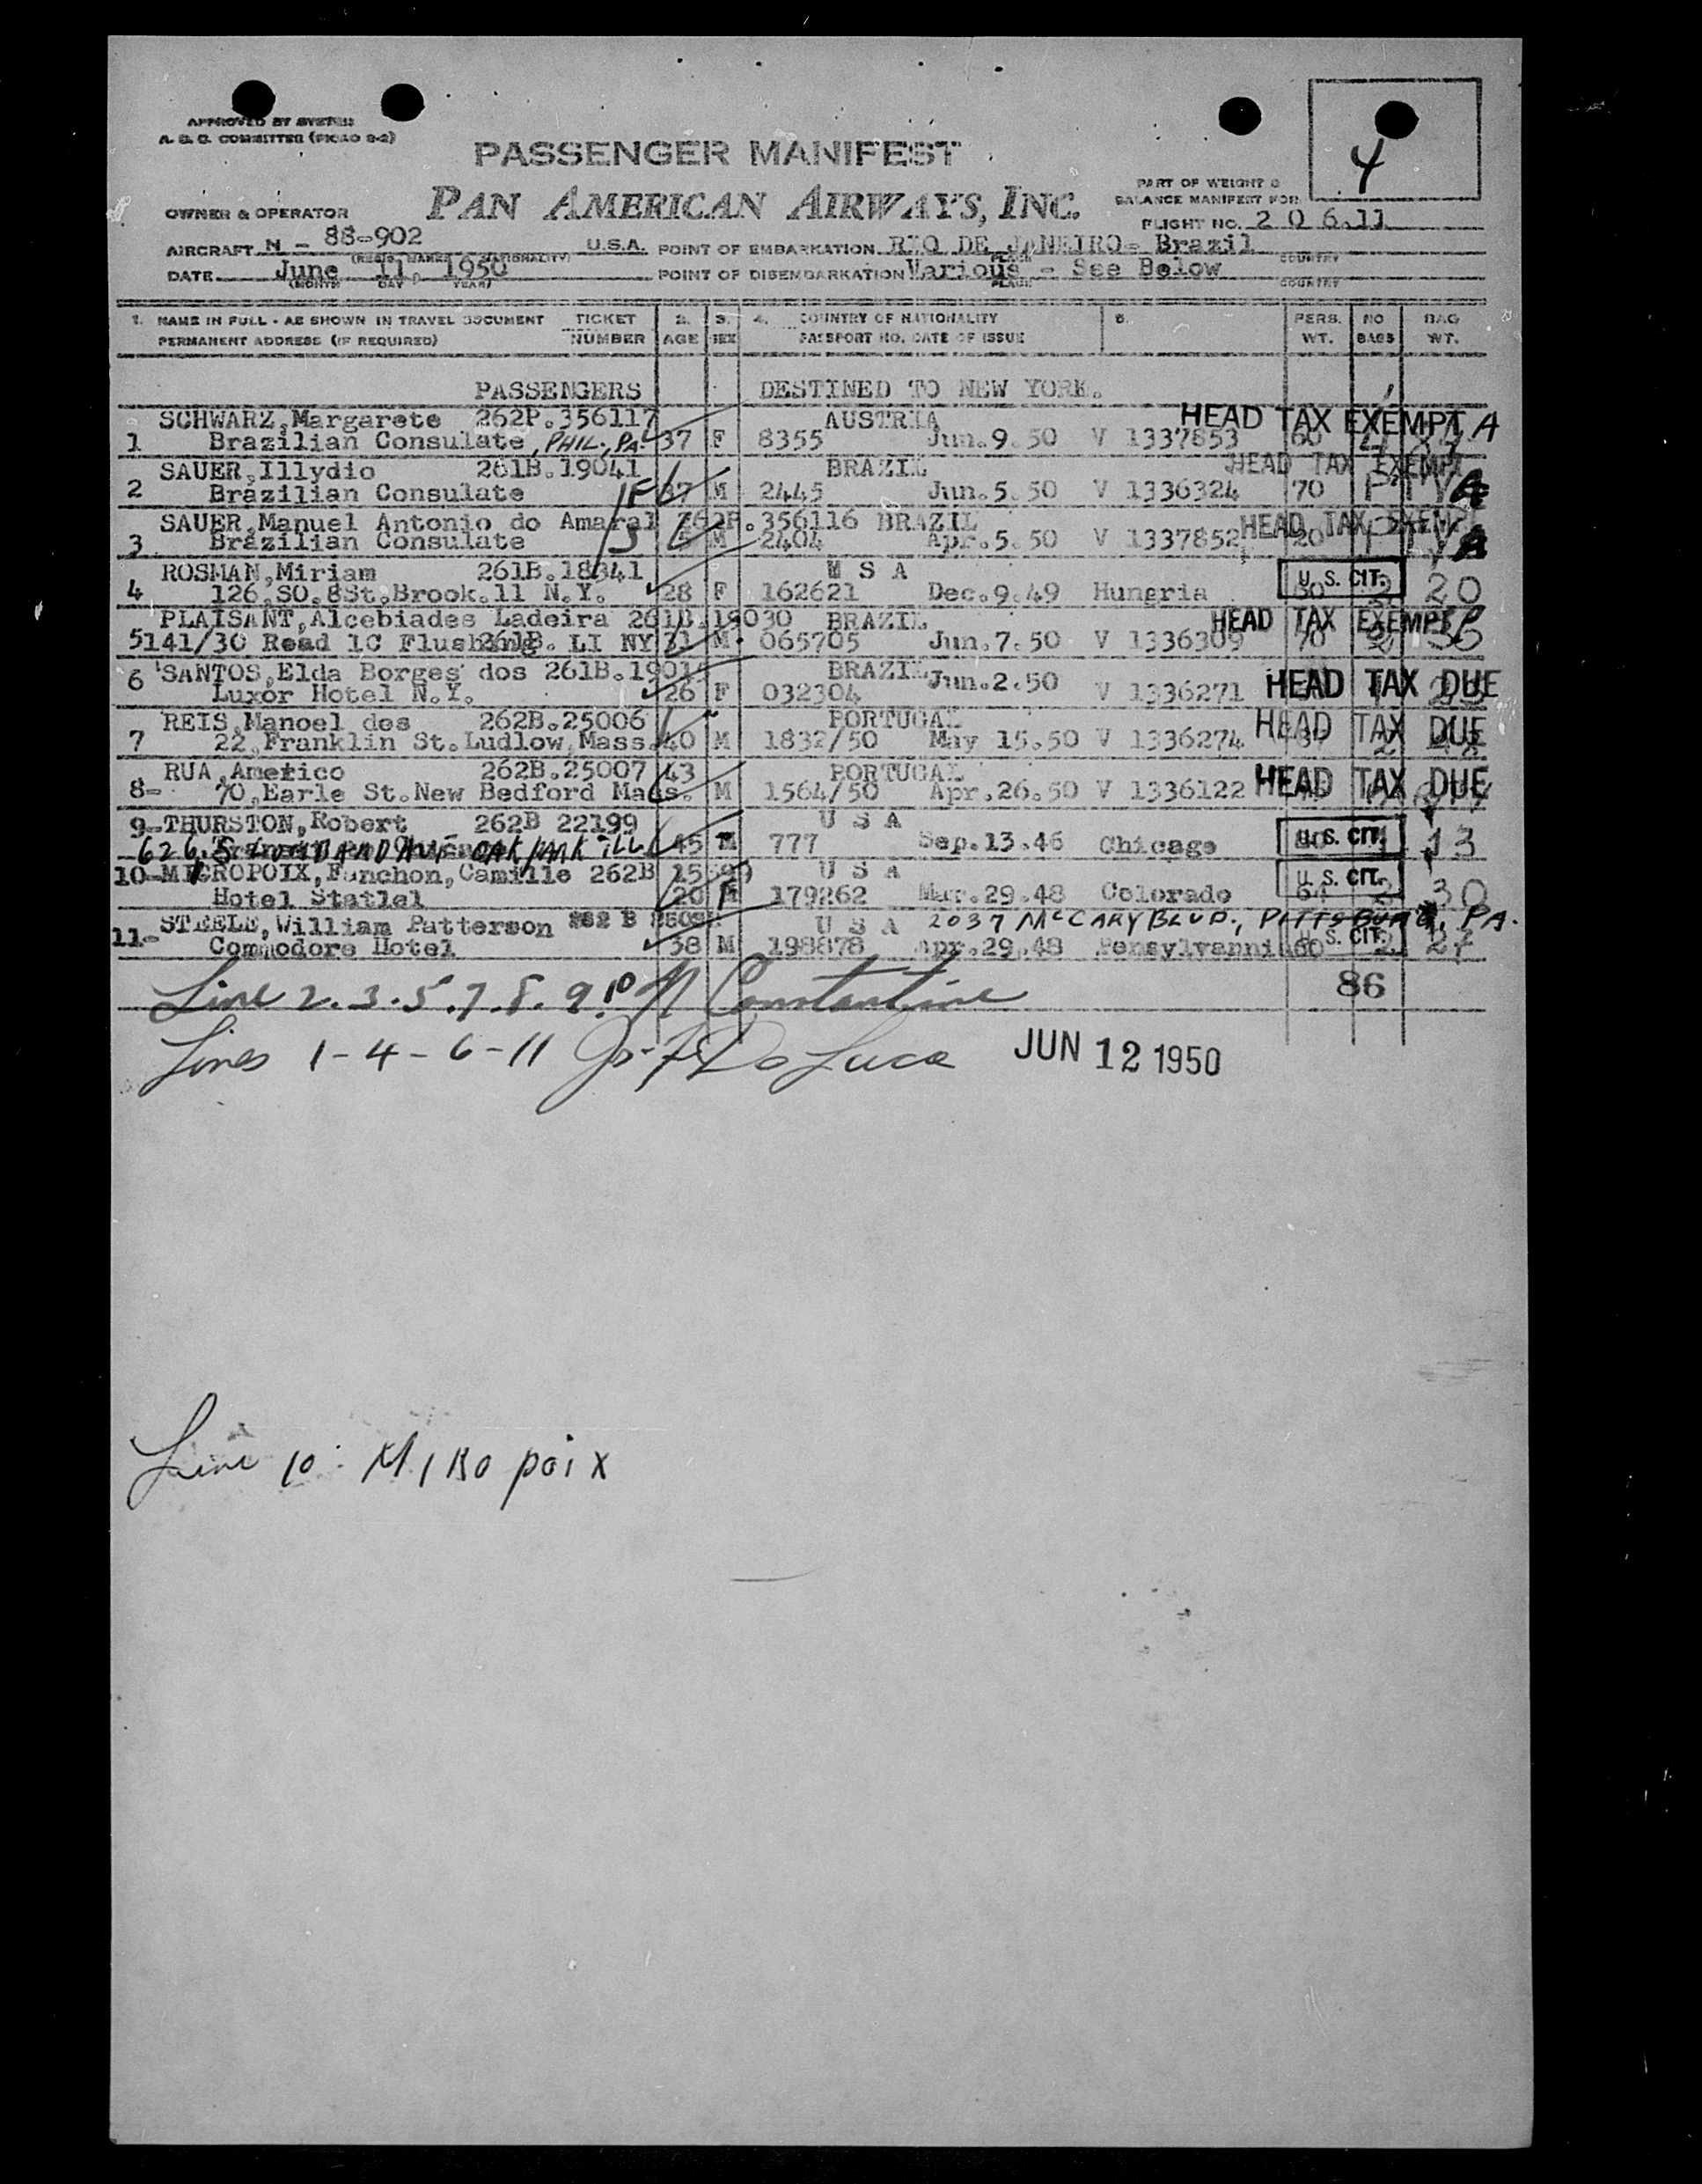 APPROVED BY SYSTEM
A. S. G. COMMITTEE
PASSENGER MANIFEST
4
PAN AMERICAN AIRWAYS, INC.
PART OF WEIGHT &
BALANCE MANIFEST FOR
FLIGHT NO. 2 0 6.11
OWNER & OPERATOR
AIRCRAFT N - 88-902 U.S.A. POINT OF EMBARKATION RIO DE JANEIRO- Brazil
DATE June 11, 1950 POINT OF DISEMBARKATION Various - See Below
(MONTH DAY YEAR) PLACE COUNTRY
1. NAME IN FULL - AS SHOWN IN TRAVEL DOCUMENT TICKET 2. 3. 4. COUNTRY OF NATIONALITY PERS. NO BAG
PERMANENT ADDRESS (IF REQUIRED) NUMBER AGE SEX PASSPORT NO. DATE OF ISSUE WT. BAGS WT.
PASSENGERS DESTINED TO NEW YORK.
SCHWARZ,Margarete 262P.356117 AUSTRIA HEAD TAX EXEMPT A
1 Brazilian Consulate, PHIL., PA 37 F 8355 Jun.9.50 V 1337853 60
SAUER,Illydio 261B.19041 BRAZIL HEAD TAX EXEMPT
2 Brazilian Consulate 37 M 2445 Jun.5.50 V 1336324 70
SAUER,Manuel Antonio do Amaral 262P.356116 BRAZIL HEAD TAX EXEMPT
3 Brazilian Consulate 5 M 2404 Apr.5.50 V 1337852 20 A
ROSMAN,Miriam 261B.18341 U S A U. S. CIT.
4 126,SO.8St,Brook.11 N.Y. 28 F 162621 Dec.9.49 Hungria 20
PLAISANT,Alcebiades Ladeira 261B.19030 BRAZIL HEAD TAX EXEMPT
5 141/30 Read 1C Flushing. LI NY 31 M 065705 Jun.7.50 V 1336309 70
6 SANTOS,Elda Borges dos BRAZIL Jun.2.50
Luxor Hotel N.Y. 26 F 032304 V 1336271 HEAD TAX DUE
REIS,Manoel dos 262B.25006 PORTUGAL HEAD TAX DUE
7 22,Franklin St.Ludlow,Mass. 40 M 1832/50 May 15.50 V 1336274
RUA,Americo 262B.25007 43 PORTUGAL HEAD TAX DUE
8- 70,Earle St.New Bedford Mass. M 1564/50 Apr.26.50 V 1336122
9-THURSTON,Robert - 262B 22199 U S A U. S. CIT.
626 S OAK PARK ILL 45 M 777 Sep.13.46 Chicago 13
10-MICROPOIX,Fanchon,Camille 262B U S A U. S. CIT.
Hotel Statlel 20 179262 Mar.29.48 Colorado 64 2 30
STEELE,William Patterson U S A 2037 McCARY BLVD., PITTSBURG, PA.
11- Commodore Hotel 38 M 198878 Apr.29.48 Pensylvanni 60 U. S. CIT. 27
Line 2.3.5.7.8.9.10 Constantine 86
Lines 1-4-6-11 De Luca JUN 12 1950
Line 10: MIROpoix